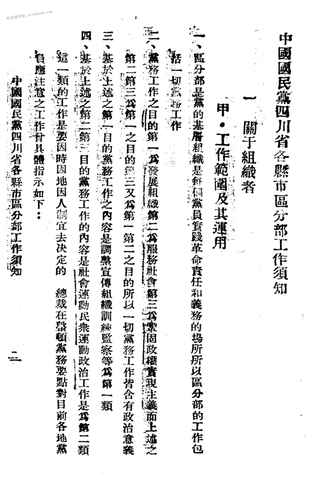 中國國民黨四川省各縣市區分部工作須知
一 關于組織者
甲・工作範圍及其運用
一、區分部是黨的基層組織是每個黨員實踐革命責任和義務的場所所以區分部的工作包
括一切黨務工作
二、黨務工作之目的第一為發展組織第二為服務社會第三為鞏固政權實現主義而上述之
第二第三為第一之目的第三又為第一第二之目的所以一切黨務工作皆含有政治意義
三、基於上述之第一目的黨務工作之內容是調整宣傳組織訓練監察等為第一類
四、基於上述之第二第三目的黨務工作的內容是社會運動民衆運動政治工作是為第二類
這一類的工作是要因時因地因人制宜去決定的 總裁在整頓黨務要點對目前各地黨
員應注意之工作曾具體指示如下：
中國國民黨四川省各縣市區分部工作須知